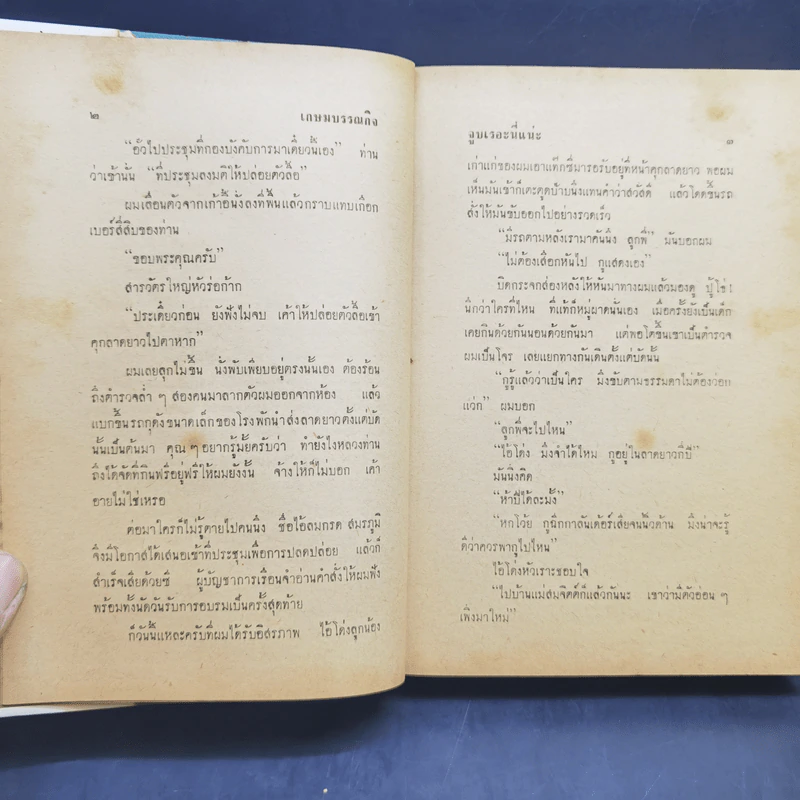 ๒ เกษมบรรณกิจ
"อั๊วไปประชุมที่กองบังคับการมาเดี๋ยวนี้เอง" ท่าน
ว่าเข้านั่น "ที่ประชุมลงมติให้ปล่อยตัวลื้อ"
ผมเลื่อนตัวจากเก้าอี้นั่งลงที่พื้นแล้วกราบแทบเกือก
เบอร์สี่สิบของท่าน
"ขอบพระคุณครับ"
สารวัตรใหญ่หัวร่อก้าก
"ประเดี๋ยวก่อน ยังฟังไม่จบ เค้าให้ปล่อยตัวลื้อเข้า
คุกลาดยาวไปตาหาก"
ผมเลยลุกไม่ขึ้น นั่งพับเพียบอยู่ตรงนั้นเอง ต้องร้อน
ถึงตำรวจล่ำ ๆ สองคนมาลากตัวผมออกจากห้อง แล้ว
แบกขึ้นรถกุดังขนาดเล็กของโรงพักนำส่งลาดยาวตั้งแต่บัด
นั้นเป็นต้นมา คุณ ๆ อยากรู้มั้ยครับว่า ทำยังไงหลวงท่าน
ถึงได้จัดที่กินฟรีอยู่ฟรีให้ผมยังงั้น จ้างให้ก็ไม่บอก เค้า
อายไม่ใช่เหรอ
ต่อมาใครก็ไม่รู้ตายไปคนนึง ชื่อไอ้ลมกรด สมรภูมิ
จึงมีโอกาสได้เสนอเข้าที่ประชุมเพื่อการปลดปล่อย แล้วก็
สำเร็จเสียด้วยซี ผู้บัญชาการเรือนจำอ่านคำสั่งให้ผมฟัง
พร้อมทั้งนัดวันรับการอบรมเป็นครั้งสุดท้าย
ก็วันนี้แหละครับที่ผมได้รับอิสรภาพ ไอ้โด่งลูกน้อง
จูบเรอะนี่แน่ะ ๓
เก่าแก่ของผมเอาแท็กซี่มารอรับอยู่ที่หน้าคุกลาดยาว พอผม
เห็นมันเข้าก็เตะตูดป้าบนึงแทนคำว่าสวัสดี แล้วโดดขึ้นรถ
สั่งให้มันขับออกไปอย่างรวดเร็ว
"มีรถตามหลังเรามาคันนึง ลูกพี่" มันบอกผม
"ไม่ต้องเสือกหันไป กูแสดงเอง"
บิดกระจกส่องหลังให้หันมาทางผมแล้วมองดู ปู้โธ่!
นึกว่าใครที่ไหน ที่แท้ก็หมู่ผาดนั่นเอง เมื่อครั้งยังเป็นเด็ก
เคยกินด้วยกันนอนด้วยกันมา แต่พอโตขึ้นเขาเป็นตำรวจ
ผมเป็นโจร เลยแยกทางกันเดินตั้งแต่บัดนั้น
"กูรู้แล้วว่าเป็นใคร มึงขับตามธรรมดาไม่ต้องว่อก
แว่ก" ผมบอก
"ลูกพี่จะไปไหน"
"ไอ้โด่ง มึงจำได้ไหม กูอยู่ในลาดยาวกี่ปี"
มันนิ่งคิด
"ห้าปีได้ละมั้ง"
"หกโว้ย กูฉีกกาลันเด้อร์เสียจนนิ้วด้าน มึงน่าจะรู้
ดีว่าควรพากูไปไหน"
ไอ้โด่งหัวเราะชอบใจ
"ไปบ้านแม่สมจิตต์ก็แล้วกันนะ เขาว่ามีตัวอ่อน ๆ
เพิ่งมาใหม่"